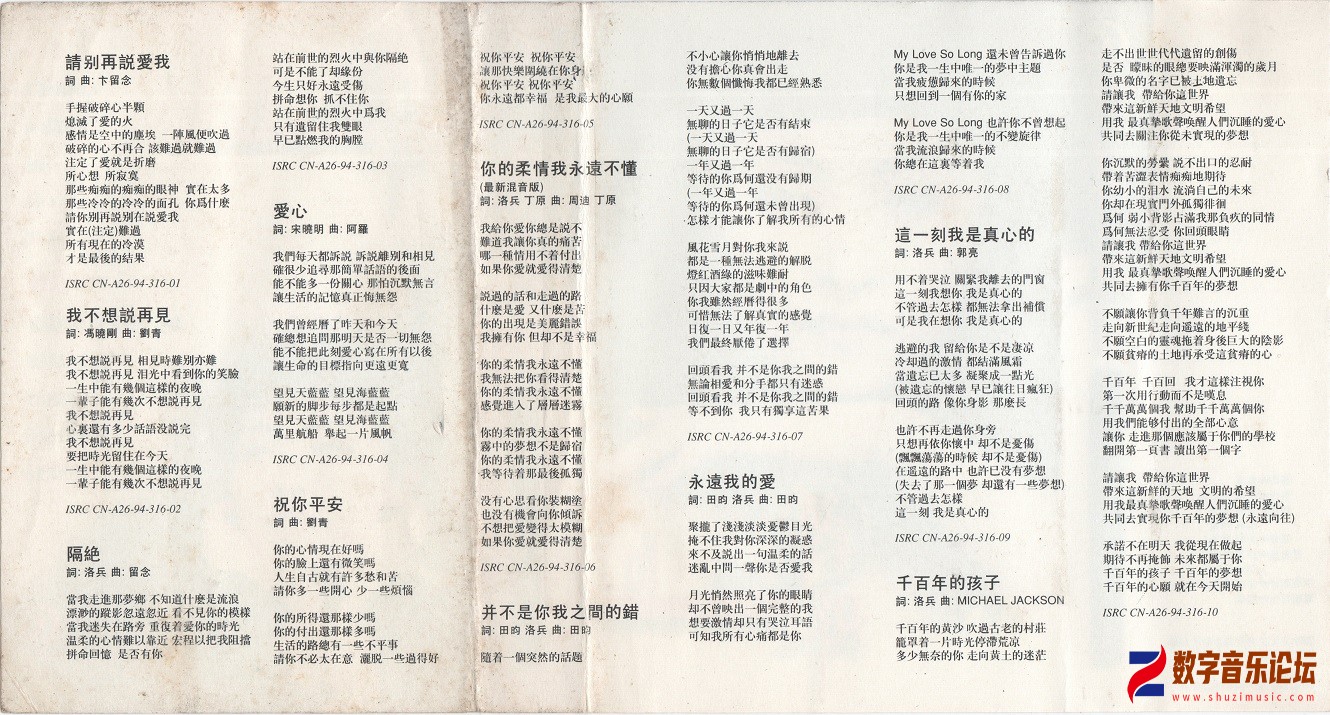 請别再説愛我
詞 曲: 卞留念
手握破碎心半顆
熄滅了愛的火
感情是空中的塵埃 一陣風便吹過
破碎的心不再合 該難過就難過
注定了愛就是折磨
所心想 所寂寞
那些痴痴的痴痴的眼神 實在太多
那些冷冷的冷冷的面孔 你爲什麽
請你别再説别在説愛我
實在(注定)難過
所有現在的冷漠
才是最後的結果
ISRC CN-A26-94-316-01
我不想説再見
詞: 馮曉剛 曲: 劉青
我不想説再見 相見時難别亦難
我不想説再見 泪光中看到你的笑臉
一生中能有幾個這樣的夜晚
一輩子能有幾次不想説再見
我不想説再見
心裏還有多少話語没説完
我不想説再見
要把時光留住在今天
一生中能有幾個這樣的夜晚
一輩子能有幾次不想説再見
ISRC CN-A26-94-316-02
隔絶
詞: 洛兵 曲: 留念
當我走進那夢鄉 不知道什麽是流浪
漂渺的蹤影忽遠忽近 看不見你的模樣
當我迷失在路旁 重復着愛你的時光
温柔的心情難以靠近 宏程以把我阻擋
拼命回憶 是否有你
站在前世的烈火中與你隔絶
可是不能了却緣份
今生只好永遠受傷
拼命想你 抓不住你
站在前世的烈火中爲我
只有遺留住我雙眼
早已點燃我的胸膛
ISRC CN-A26-94-316-03
愛心
詞: 宋曉明 曲: 阿羅
我們每天都訴説 訴説離别和相見
確很少追尋那簡單話語的後面
能不能多一份關心 那怕沉默無言
讓生活的記憶真正悔無怨
我們曾經曆了昨天和今天
確總想追問那明天是否一切無怨
能不能把此刻愛心寫在所有以後
讓生命的目標指向更遠更寬
望見天藍藍 望見海藍藍
願新的脚步每步都是起點
望見天藍藍 望見海藍藍
萬里航船 舉起一片風帆
ISRC CN-A26-94-316-04
祝你平安
詞 曲: 劉青
你的心情現在好嗎
你的臉上還有微笑嗎
人生自古就有許多愁和苦
請你多一些開心 少一些煩惱
你的所得還那樣少嗎
你的付出還那樣多嗎
生活的路總有一些不平事
請你不必太在意 灑脱一些過得好
祝你平安 祝你平安
讓那快樂圍繞在你身邊
祝你平安 祝你平安
你永遠都幸福 是我最大的心願
ISRC CN-A26-94-316-05
你的柔情我永遠不懂
(最新混音版)
詞: 洛兵 丁原 曲: 周迪 丁原
我給你愛你總是説不
難道我讓你真的痛苦
哪一種情用不着付出
如果你愛就愛得清楚
説過的話和走過的路
什麽是愛 又什麽是苦
你的出現是美麗錯誤
我擁有你 但却不是幸福
你的柔情我永遠不懂
我無法把你看得清楚
你的柔情我永遠不懂
感覺進入了層層迷霧
你的柔情我永遠不懂
霧中的夢想不是歸宿
你的柔情我永遠不懂
我等待着那最後孤獨
没有心思看你裝糊塗
也没有機會向你傾訴
不想把愛變得太模糊
如果你愛就愛得清楚
ISRC CN-A26-94-316-06
并不是你我之間的錯
詞: 田昀 洛兵 曲: 田昀
隨着一個突然的話題
不小心讓你悄悄地離去
没有擔心你真會出走
你無數個懺悔我都已經熟悉
一天又過一天
無聊的日子它是否有結束
(一天又過一天
無聊的日子它是否有歸宿)
一年又過一年
等待的你爲何還没有歸期
(一年又過一年
等待的你爲何還未曾出現)
怎樣才能讓你了解我所有的心情
風花雪月對你我來説
都是一種無法逃避的解脱
燈紅酒緑的滋味難耐
只因大家都是劇中的角色
你我雖然經曆得很多
可惜無法了解真實的感覺
日復一日又年復一年
我們最終厭倦了選擇
回頭看我 并不是你我之間的錯
無論相愛和分手都只有迷惑
回頭看我 并不是你我之間的錯
等不到你 我只有獨享這苦果
ISRC CN-A26-94-316-07
永遠我的愛
詞: 田昀 洛兵 曲: 田昀
聚攏了淺淺淡淡憂鬱目光
掩不住我對你深深的凝惑
來不及説出一句温柔的話
迷亂中問一聲你是否愛我
月光悄然照亮了你的眼睛
却不曾映出一個完整的我
想要激情却只有哭泣耳語
可知我所有心痛都是你
My Love So Long 還未曾告訴過你
你是我一生中唯一的夢中主題
當我疲憊歸來的時候
只想回到一個有你的家
My Love So Long 也許你不曾想起
你是我一生中唯一的不變旋律
當我流浪歸來的時候
你總在這裏等着我
ISRC CN-A26-94-316-08
這一刻我是真心的
詞: 洛兵 曲: 郭亮
用不着哭泣 關緊我離去的門窗
這一刻我想你 我是真心的
不管過去怎樣 都無法拿出補償
可是我在想你 我是真心的
逃避的我 留給你是不是凄凉
冷却過的激情 都結滿風霜
當遺忘已太多 凝聚成一點光
(被遺忘的懷戀 早已讓往日瘋狂)
回頭的路 像你身影 那麽長
也許不再走過你身旁
只想再依你懷中 却不是憂傷
(飄飄蕩蕩的時候 却不是憂傷)
在遥遠的路中 也許已没有夢想
(失去了那一個夢 却還有一些夢想)
不管過去怎樣
這一刻 我是真心的
ISRC CN-A26-94-316-09
千百年的孩子
詞: 洛兵 曲: MICHAEL JACKSON
千百年的黄沙 吹過古老的村莊
籠罩着一片時光停滯荒凉
多少無奈的你 走向黄土的迷茫
走不出世世代代遺留的創傷
是否 矇昧的眼總要映滿渾濁的歲月
你卑微的名字已被土地遺忘
請讓我 帶給你這世界
帶來這新鮮天地文明希望
用我 最真摯歌聲喚醒人們沉睡的愛心
共同去關注你從未實現的夢想
你沉默的勞纍 説不出口的忍耐
帶着苦澀表情痴痴地期待
你幼小的泪水 流淌自己的未來
你却在現實門外孤獨徘徊
爲何 弱小背影占滿我那負疚的同情
爲何無法忍受 你回頭眼睛
請讓我 帶給你這世界
帶來這新鮮天地文明希望
用我 最真摯歌聲喚醒人們沉睡的愛心
共同去擁有你千百年的夢想
不願讓你背負千年難言的沉重
走向新世紀走向遥遠的地平綫
不願空白的靈魂拖着身後巨大的陰影
不願貧瘠的土地再承受這貧瘠的心
千百年 千百回 我才這樣注視你
第一次用行動而不是嘆息
千千萬萬個我 幫助千千萬萬個你
用我們能够付出的全部心意
讓你 走進那個應該屬于你們的學校
翻開第一頁書 讀出第一個字
請讓我 帶給你這世界
帶來這新鮮的天地 文明的希望
用我最真摯歌聲喚醒人們沉睡的愛心
共同去實現你千百年的夢想 (永遠向往)
承諾不在明天 我從現在做起
期待不再掩飾 未來都屬于你
千百年的孩子 千百年的夢想
千百年的心願 就在今天開始
ISRC CN-A26-94-316-10
数字音乐论坛
www.shuzimusic.com